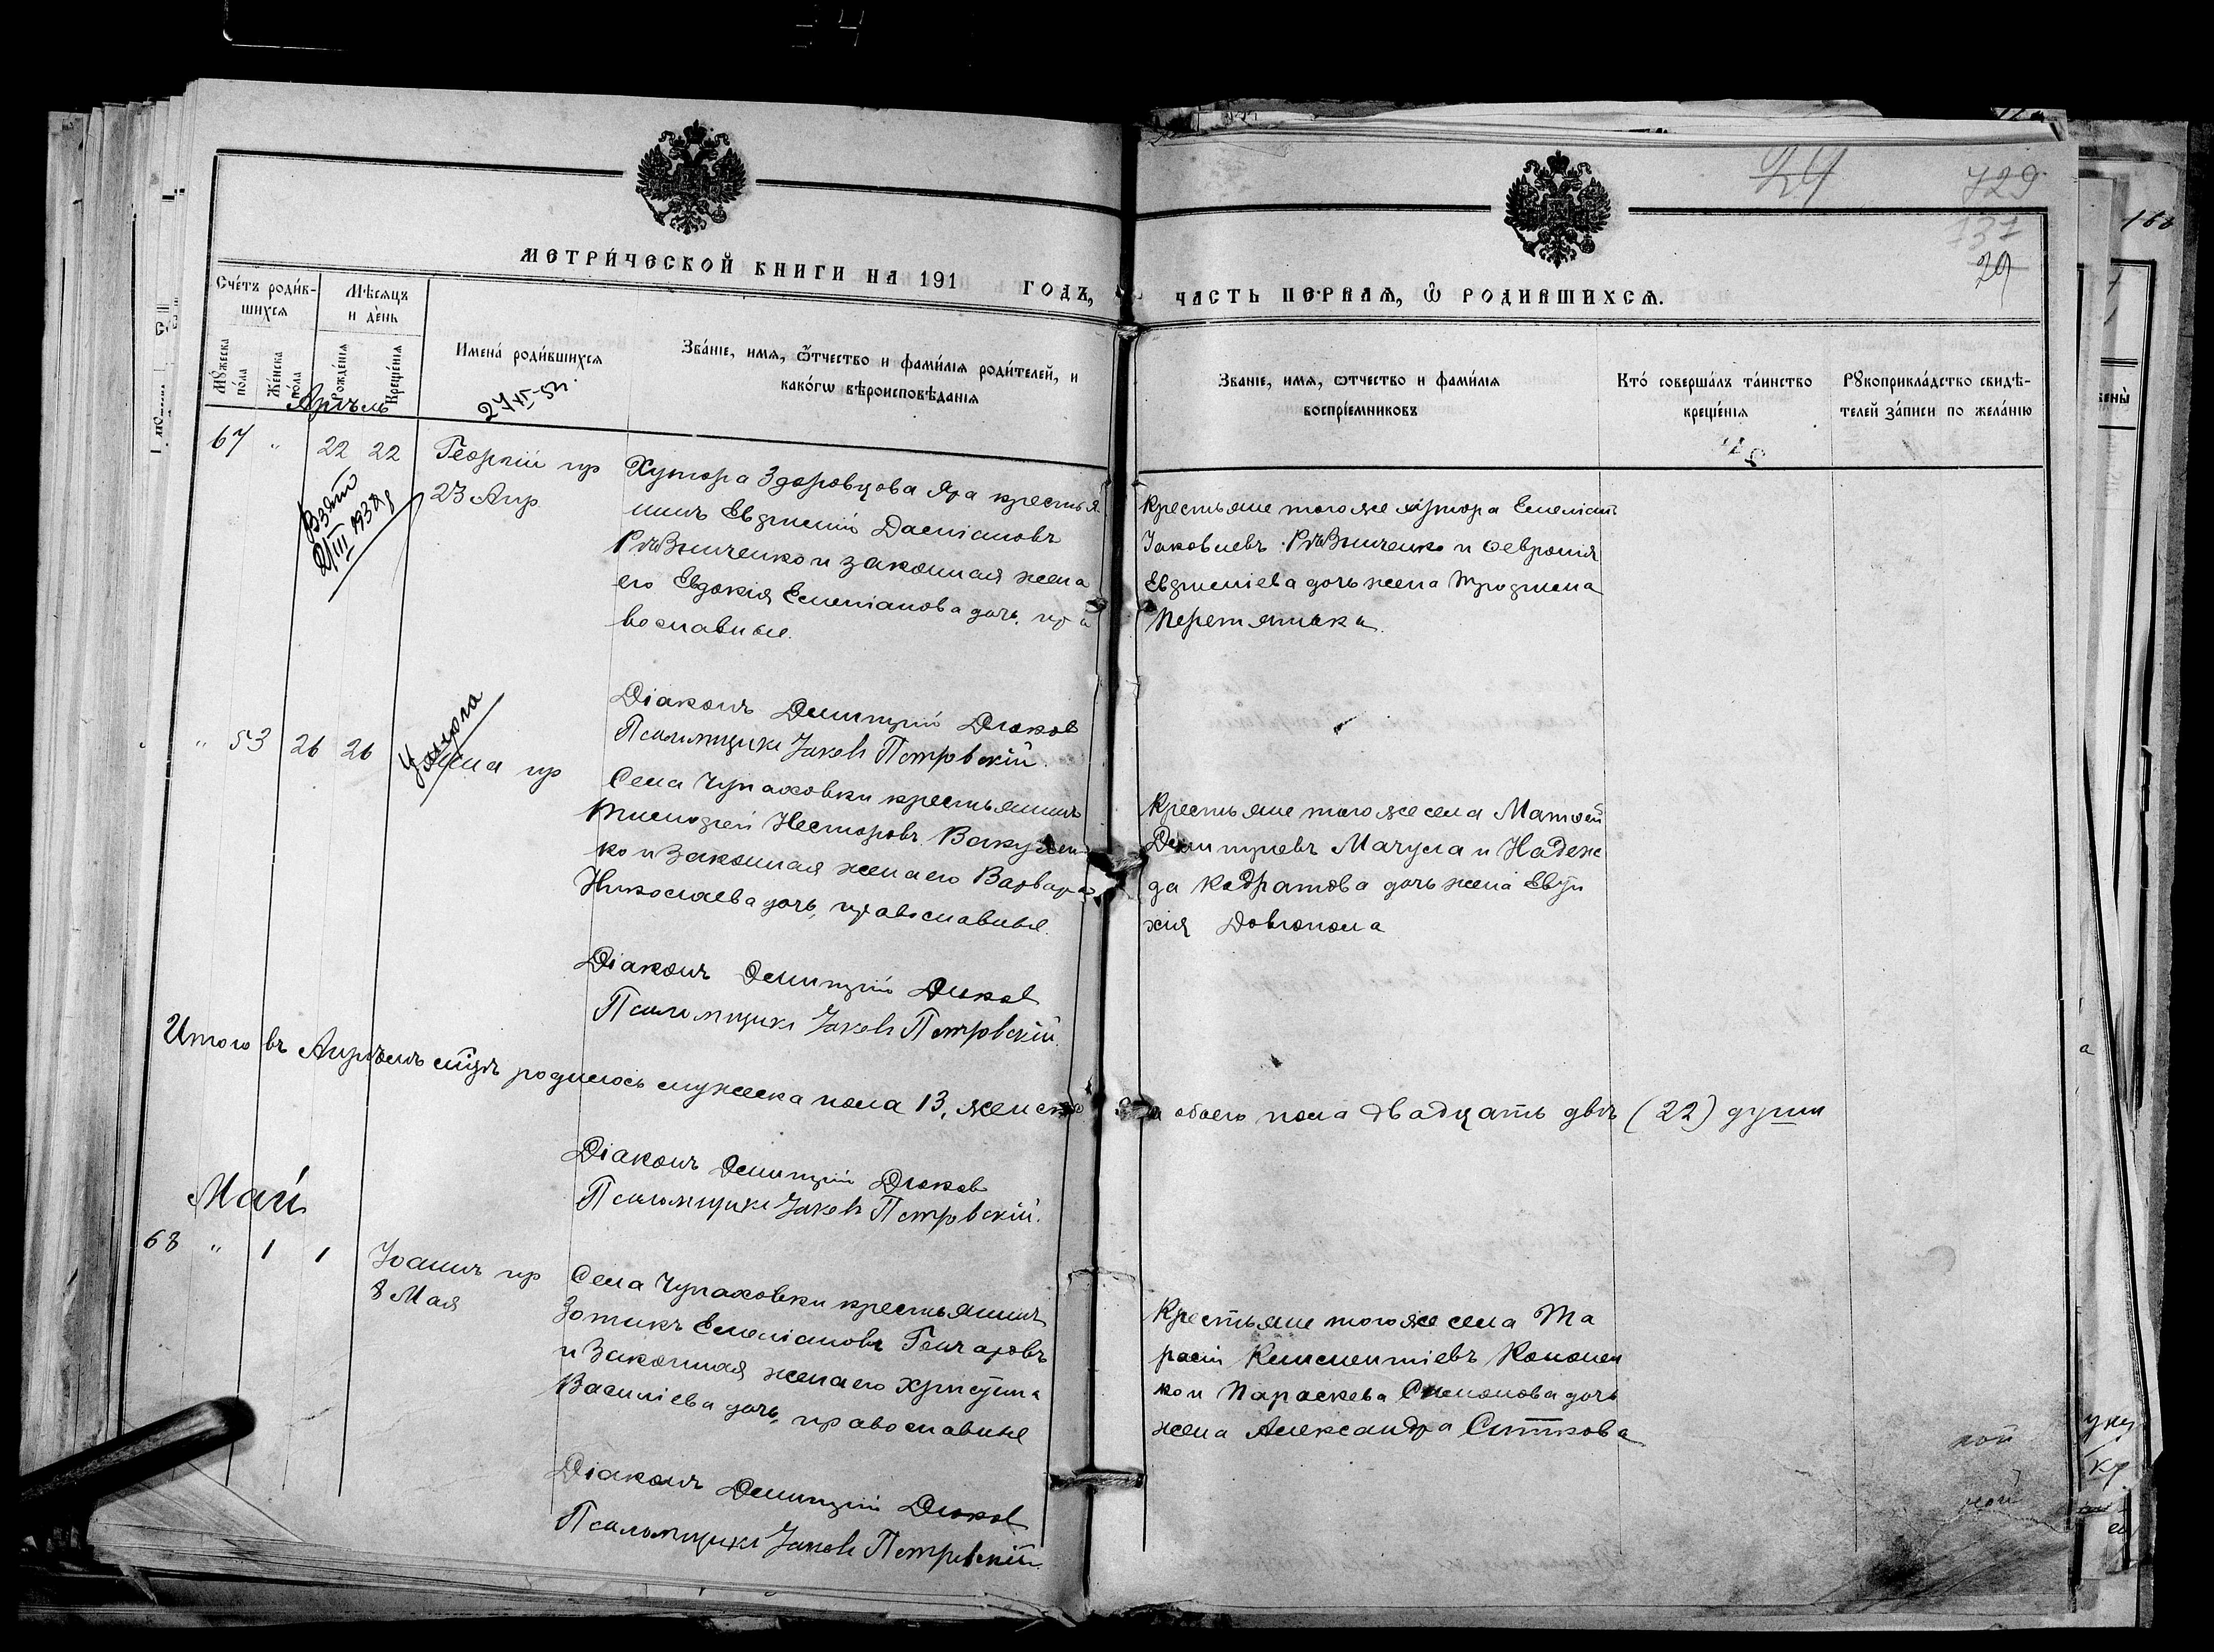 24
729
137
29
168
МЕТРИ́ЧЕСКОЙ КНИГИ НА 191 ГОДЪ,
ЧАСТЬ ПЕРВАЯ, Ѡ РОДИВШИХСЯ.
Сче́тъ роди́в-
шихся
Мѣ́сяцъ
и де́нь
Мꙋ́жеска
по́ла
Же́нска
по́ла
Рожде́нія
Креще́нія
Имена́ роди́вшихся
Зва́ніе, имя, ѻ҆́тчество и фами́лія роди́телей, и
како́гѡ вѣроисповѣ́данія
Званіе, имя, ѻтчество и фами́лія
воспріе́мниковъ
Кто́ соверша́лъ та́инство
креще́нія
Рꙋкоприкла́дство свидѣ́-
телей за́писи по жела́нію
Апрѣль
67 " 22 22 Георгій пр
23 Апр
Взято
Хутора Здоровцова Яра крестья
нинъ Евфимій Даміановъ
и законная жена
его Евдокія Емеліанова дочь, пра
вославные.
Крестьяне того же хутора Емеліанъ
Іаковлевъ и Февронія
Евфиміева дочь жена Трофима
Перетятька
Діаконъ Димитрій Дюков
Псаломщикъ Іаковъ Петровскій.
" 53 26 26 Анна пр
Села Чупаховки крестьянинъ
Тимофей Несторовъ Вакулен
ко и законная жена его Варвара
Николаева дочь, православные.
Крестьяне того же села Матфей
Димитріевъ Мачула и Надеж
да Кодратова дочь жена Евти
хія Довгопола
Діаконъ Димитрій Дюков
Псаломщикъ Іаковъ Петровскій.
Итого въ Апрѣлѣ мцѣ родилось мужеска пола 13, женска
а обоего пола двадцать двѣ (22) души
Діаконъ Димитрій Дюков
Псаломщикъ Іаковъ Петровскій.
Май
68 " 1 1 Іоаннъ пр
8 Мая
Села Чупаховки крестьянинъ
Зотикъ Емеліановъ Гончаровъ
и законная жена его Христина
Василіева дочь, православные
Крестьяне того же села Та
расій Климентіевъ Кононен
ко и Параскева Симонова дочь
жена Александра Ситкова
Діаконъ Димитрій Дюков
Псаломщикъ Іаковъ Петровскій.